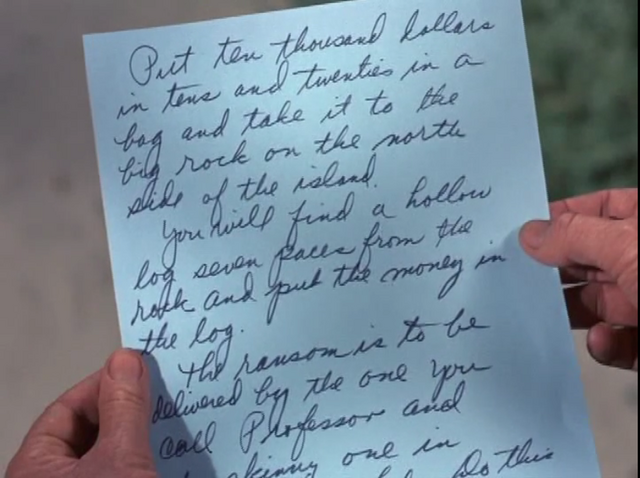 Put ten thousand dollars
in tens and twenties in a
bag and take it to the
big rock on the north
side of the island.
You will find a hollow
log seven paces from the
rock and put the money in
the log.
The ransom is to be
delivered by the one you
call Professor and
skinny one in
Do this